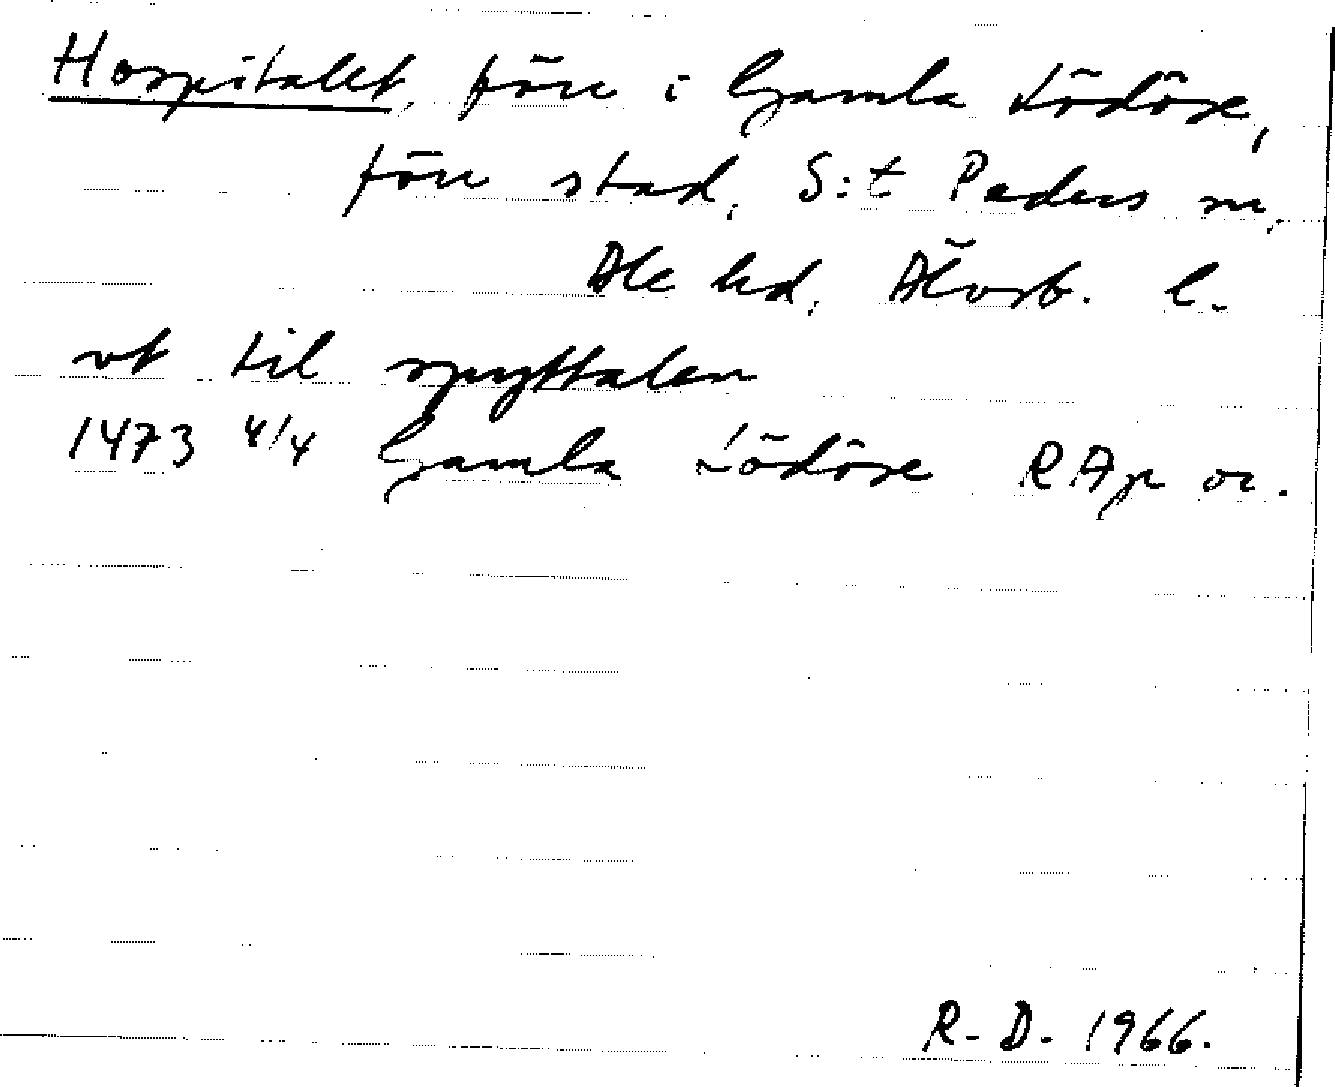 Hospitalet, förr i Gamla Lödöse,
förr stad, S:t Peders sn,
Ale hd, Älvsb. l.
vt til spyttalen
1473 4/4 Gamla Lödöse RAp or.
R-D. 1966.